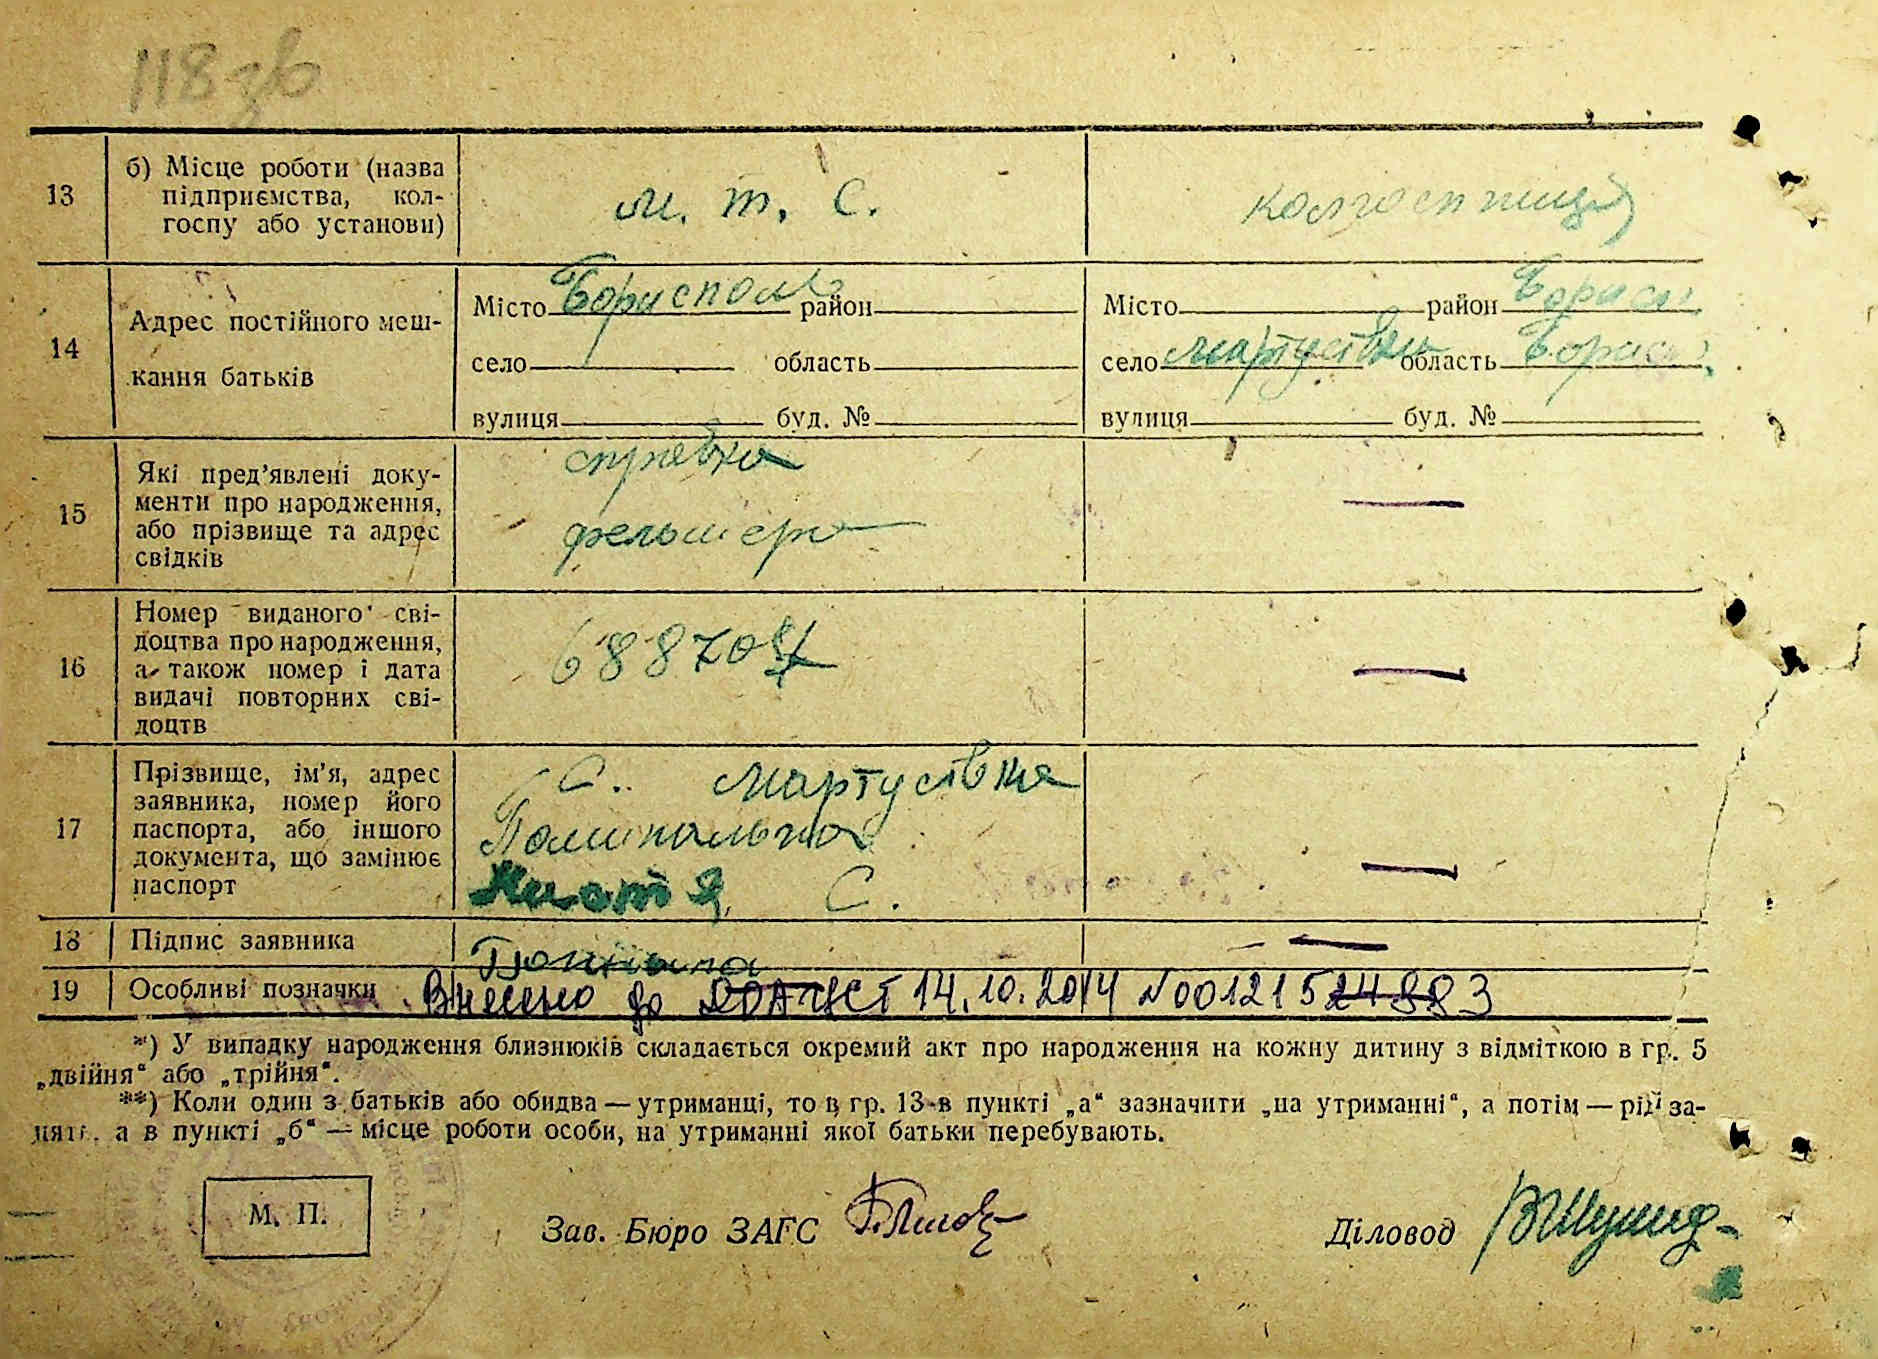 118 зв
13
б) Місце роботи (назва
підприємства, кол-
госпу або установи)
м. т. с.
колгоспниця
14
Адрес постійного меш-
кання батьків
Місто Бориспол район
село область
вулиця буд. №
Місто район Борисп
село Мартусівка область
вулиця буд. №
15
Які пред’явлені доку-
менти про народження,
або прізвище та адрес
свідків
справка
фельшера
—
16
Номер виданого сві-
доцтва про народження,
а також номер і дата
видачі повторних сві-
доцтв
—
17
Прізвище, ім’я, адрес
заявника, номер його
паспорта, або іншого
документа, що замінює
паспорт
С. Мартусівка
С.
—
18
Підпис заявника
—
19
Особливі позначки
Внесено до ДРАЦСГ 14.10.2014 №00121524883
*) У випадку народження близнюків складається окремий акт про народження на кожну дитину з відміткою в гр. 5
„двійня“ або „трійня“.
**) Коли один з батьків або обидва — утриманці, то в гр. 13-в пункті „а“ зазначити „на утриманні“, а потім — рід за-
нять, а в пункті „б“ — місце роботи особи, на утриманні якої батьки перебувають.
М. П.
Зав. Бюро ЗАГС
Діловод